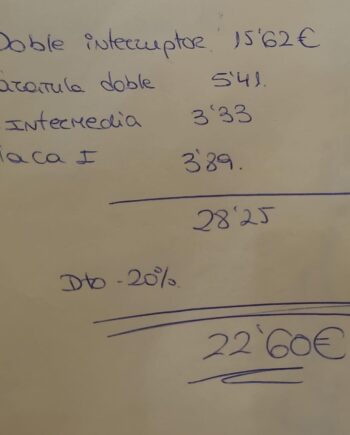 Doble interruptor 15'62€
doble 5'41.
Intermedia 3'33
I 3'89.
28'25
Dto -20%
22'60€